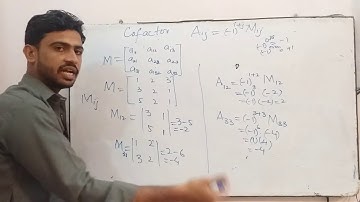 Cofactor Aij = (-1)^i+j Mij
(-1)^odd = -1
(-1)^even = +1
M = [a11 a12 a13
a21 a22 a23
a31 a32 a33]
M = [1 2 3
3 2 1
5 2 1]
|Mij
M12 = |3 1
5 1| = 3-5
= -2
M33 = |1 2
3 2| = 2-6
= -4
A12 = (-1)^1+2 M12
= (-1)^3 (-2)
= (-1)(-2) = 2
A33 = (-1)^3+3 M33
= (-1)^6 (-4)
= (1)(-4)
= -4